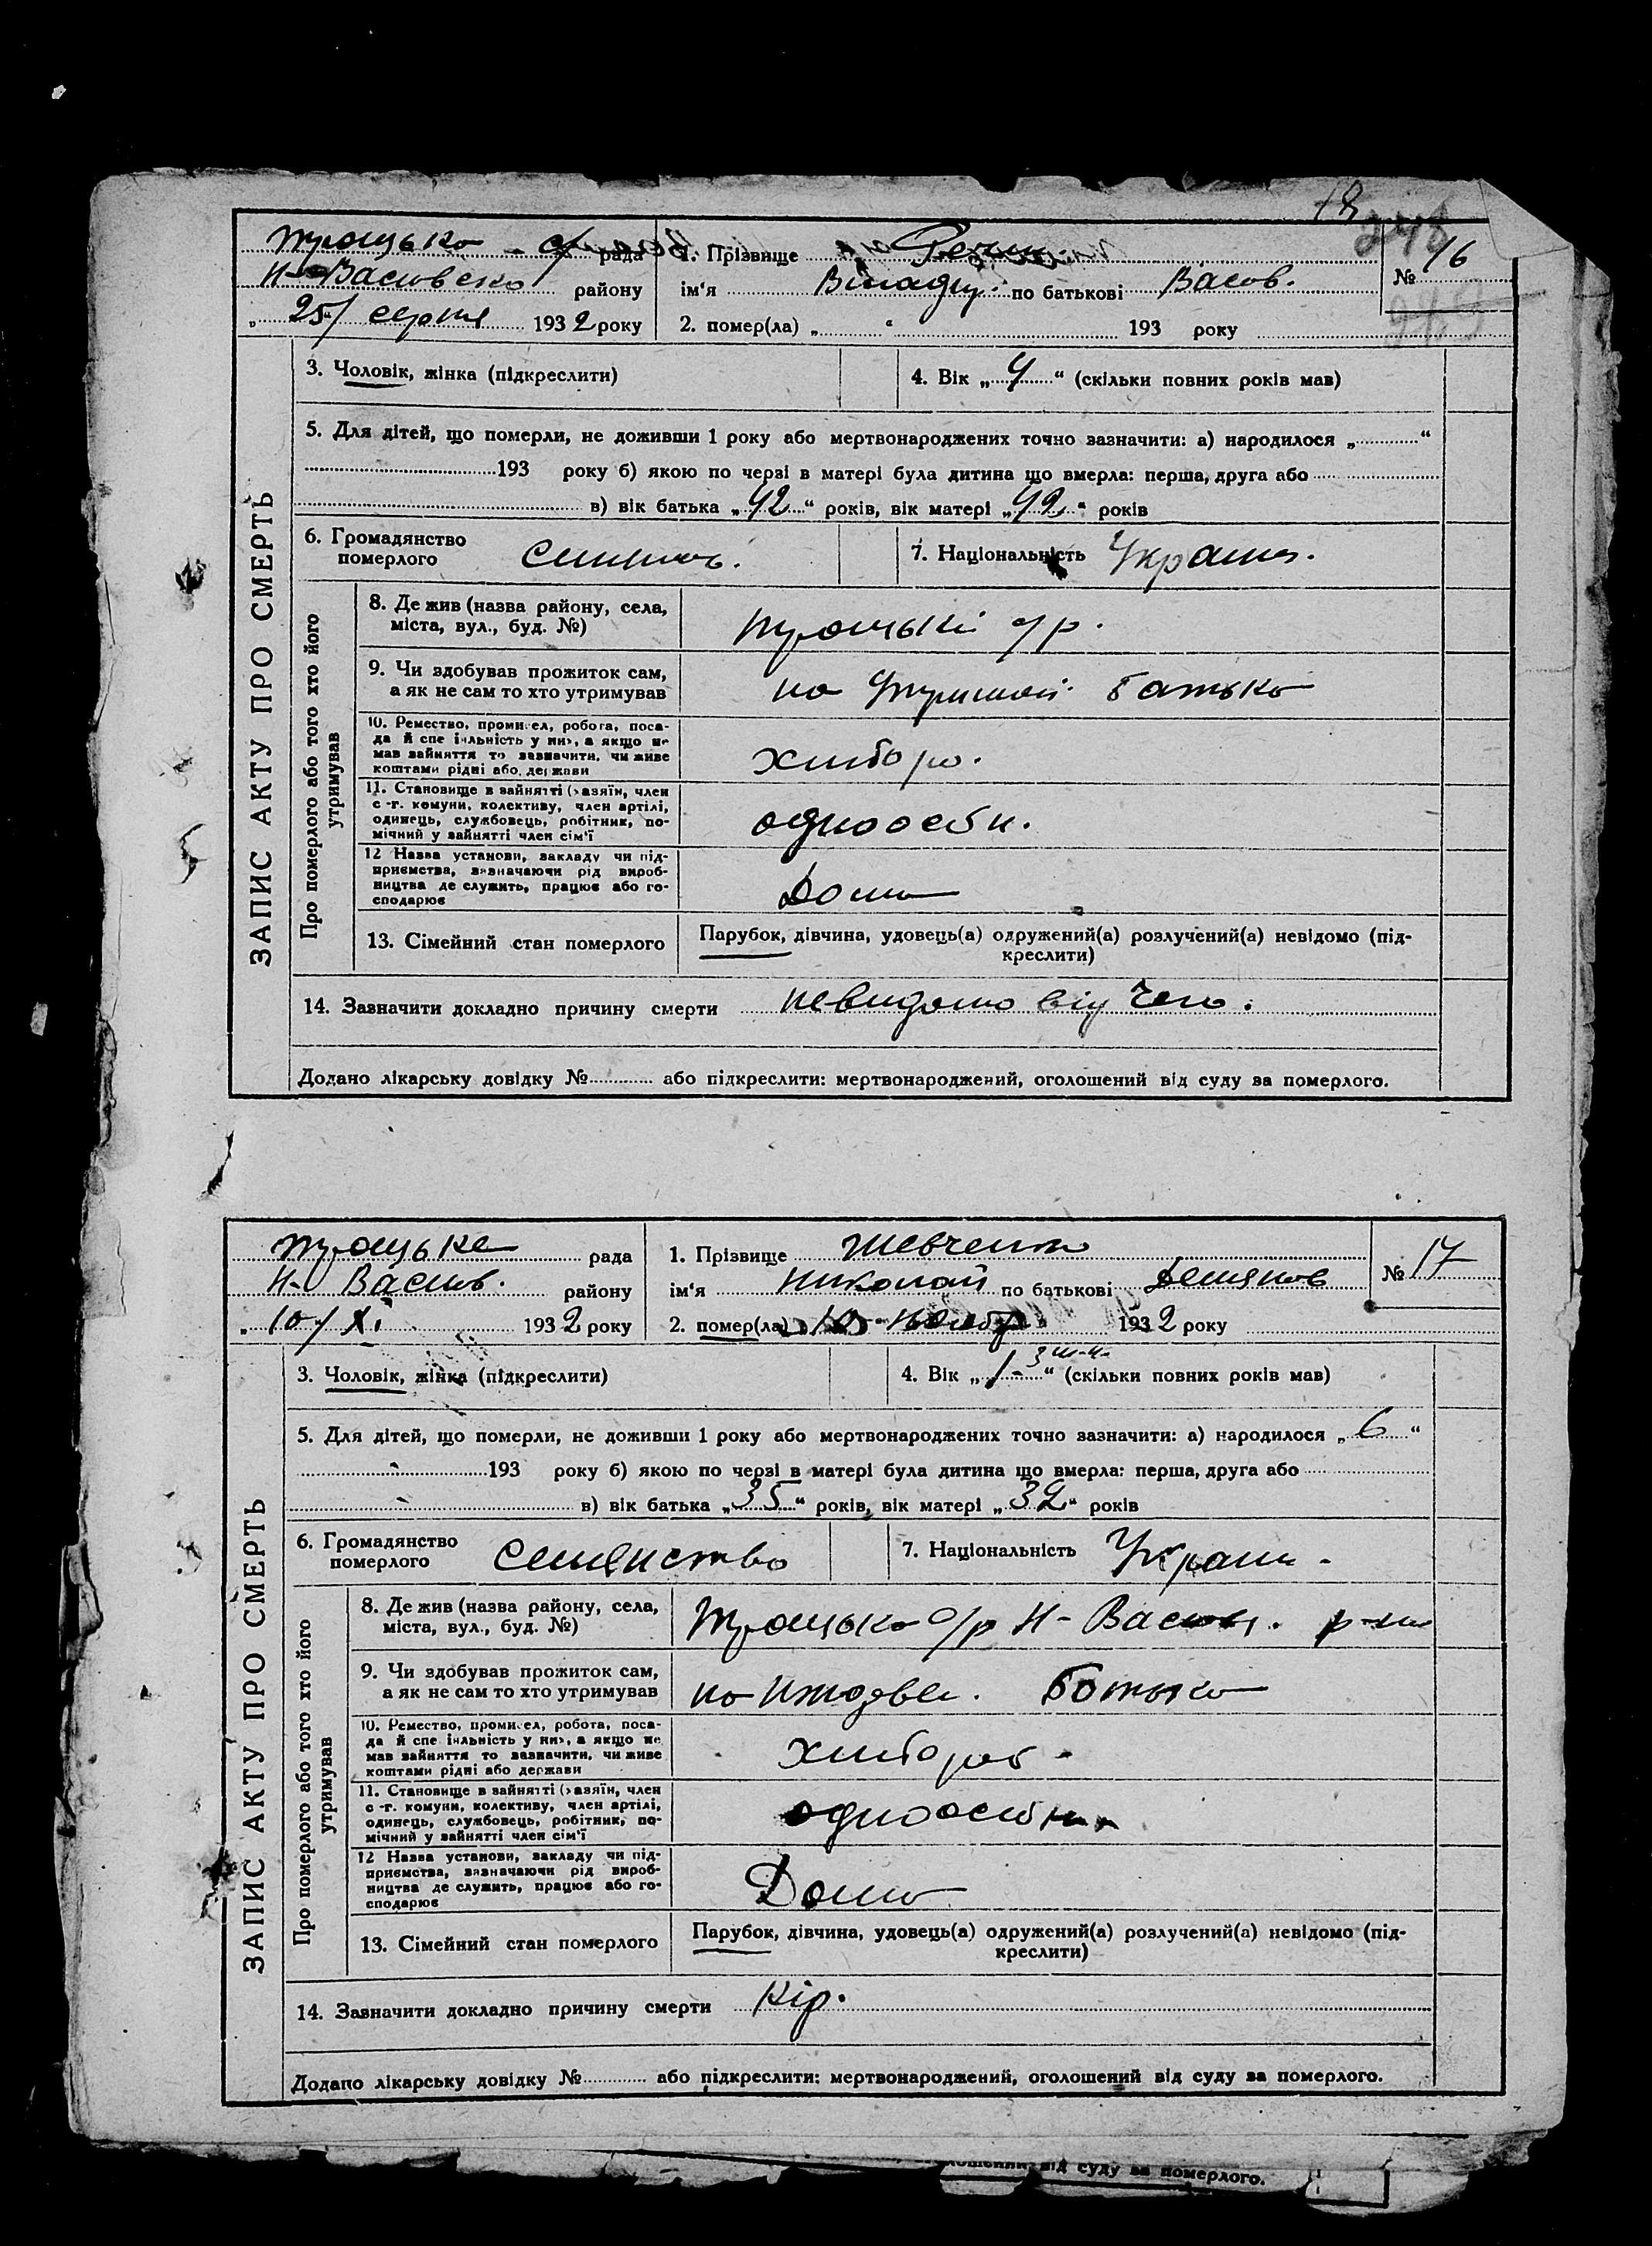 18
Троцька с/рада
1. Прізвище
№ 16
Н-Васовско району
ім'я Віладу. по батькові Васов.
„25/ серпня 1932 року
2. помер(ла) „ “ 193 року
3. Чоловік, жінка (підкреслити)
4. Вік „4“ (скільки повних років мав)
5. Для дітей, що померли, не доживши 1 року або мертвонароджених точно зазначити: а) народилося „ “
193 року б) якою по черзі в матері була дитина що вмерла: перша, друга або
в) вік батька „42“ років, вік матері „42“ років
ЗАПИС АКТУ ПРО СМЕРТЬ
6. Громадянство
померлого
7. Національність Украин.
Про померлого або того хто його
утримував
8. Де жив (назва району, села,
міста, вул., буд. №)
Троцькі с/р.
9. Чи здобував прожиток сам,
а як не сам то хто утримував
на утриман. батька
10. Ремество, промисел, робота, поса-
да й спеціяльність у них, а якщо не
мав зайняття то зазначити, чи живе
коштами рідні або держави
хлібороб.
11. Становище в зайнятті (хазяїн, член
с-г. комуни, колективу, член артілі,
одинець, службовець, робітник, по-
мічний у зайнятті член сім'ї
одноосібн.
12 Назва установи, закладу чи під-
приємства, зазначаючи рід вироб-
ництва де служить, працює або го-
сподарює
Дома
13. Сімейний стан померлого
Парубок, дівчина, удовець(а) одружений(а) розлучений(а) невідомо (під-
креслити)
14. Зазначити докладно причину смерти невидомо від чого.
Додано лікарську довідку № або підкреслити: мертвонароджений, оголошений від суду за померлого.
Троцька рада
1. Прізвище Шевченко
№ 17
Н-Васил. району
ім'я Николай по батькові Демянов
„10/XI 1932 року
2. помер(ла) 10 ноябр 1932 року
3. Чоловік, жінка (підкреслити)
4. Вік „1-“ (скільки повних років мав)
5. Для дітей, що померли, не доживши 1 року або мертвонароджених точно зазначити: а) народилося „6“
193 року б) якою по черзі в матері була дитина що вмерла: перша, друга або
в) вік батька „35“ років, вік матері „32“ років
ЗАПИС АКТУ ПРО СМЕРТЬ
6. Громадянство
померлого
селянство
7. Національність Украин.
Про померлого або того хто його
утримував
8. Де жив (назва району, села,
міста, вул., буд. №)
Троцька с/р Н-Васил. р-на
9. Чи здобував прожиток сам,
а як не сам то хто утримував
батька
10. Ремество, промисел, робота, поса-
да й спеціяльність у них, а якщо не
мав зайняття то зазначити, чи живе
коштами рідні або держави
хлібороб.
11. Становище в зайнятті (хазяїн, член
с-г. комуни, колективу, член артілі,
одинець, службовець, робітник, по-
мічний у зайнятті член сім'ї
одноосібн.
12 Назва установи, закладу чи під-
приємства, зазначаючи рід вироб-
ництва де служить, працює або го-
сподарює
Дома
13. Сімейний стан померлого
Парубок, дівчина, удовець(а) одружений(а) розлучений(а) невідомо (під-
креслити)
14. Зазначити докладно причину смерти Кір.
Додано лікарську довідку № або підкреслити: мертвонароджений, оголошений від суду за померлого.
від суду за померлого.